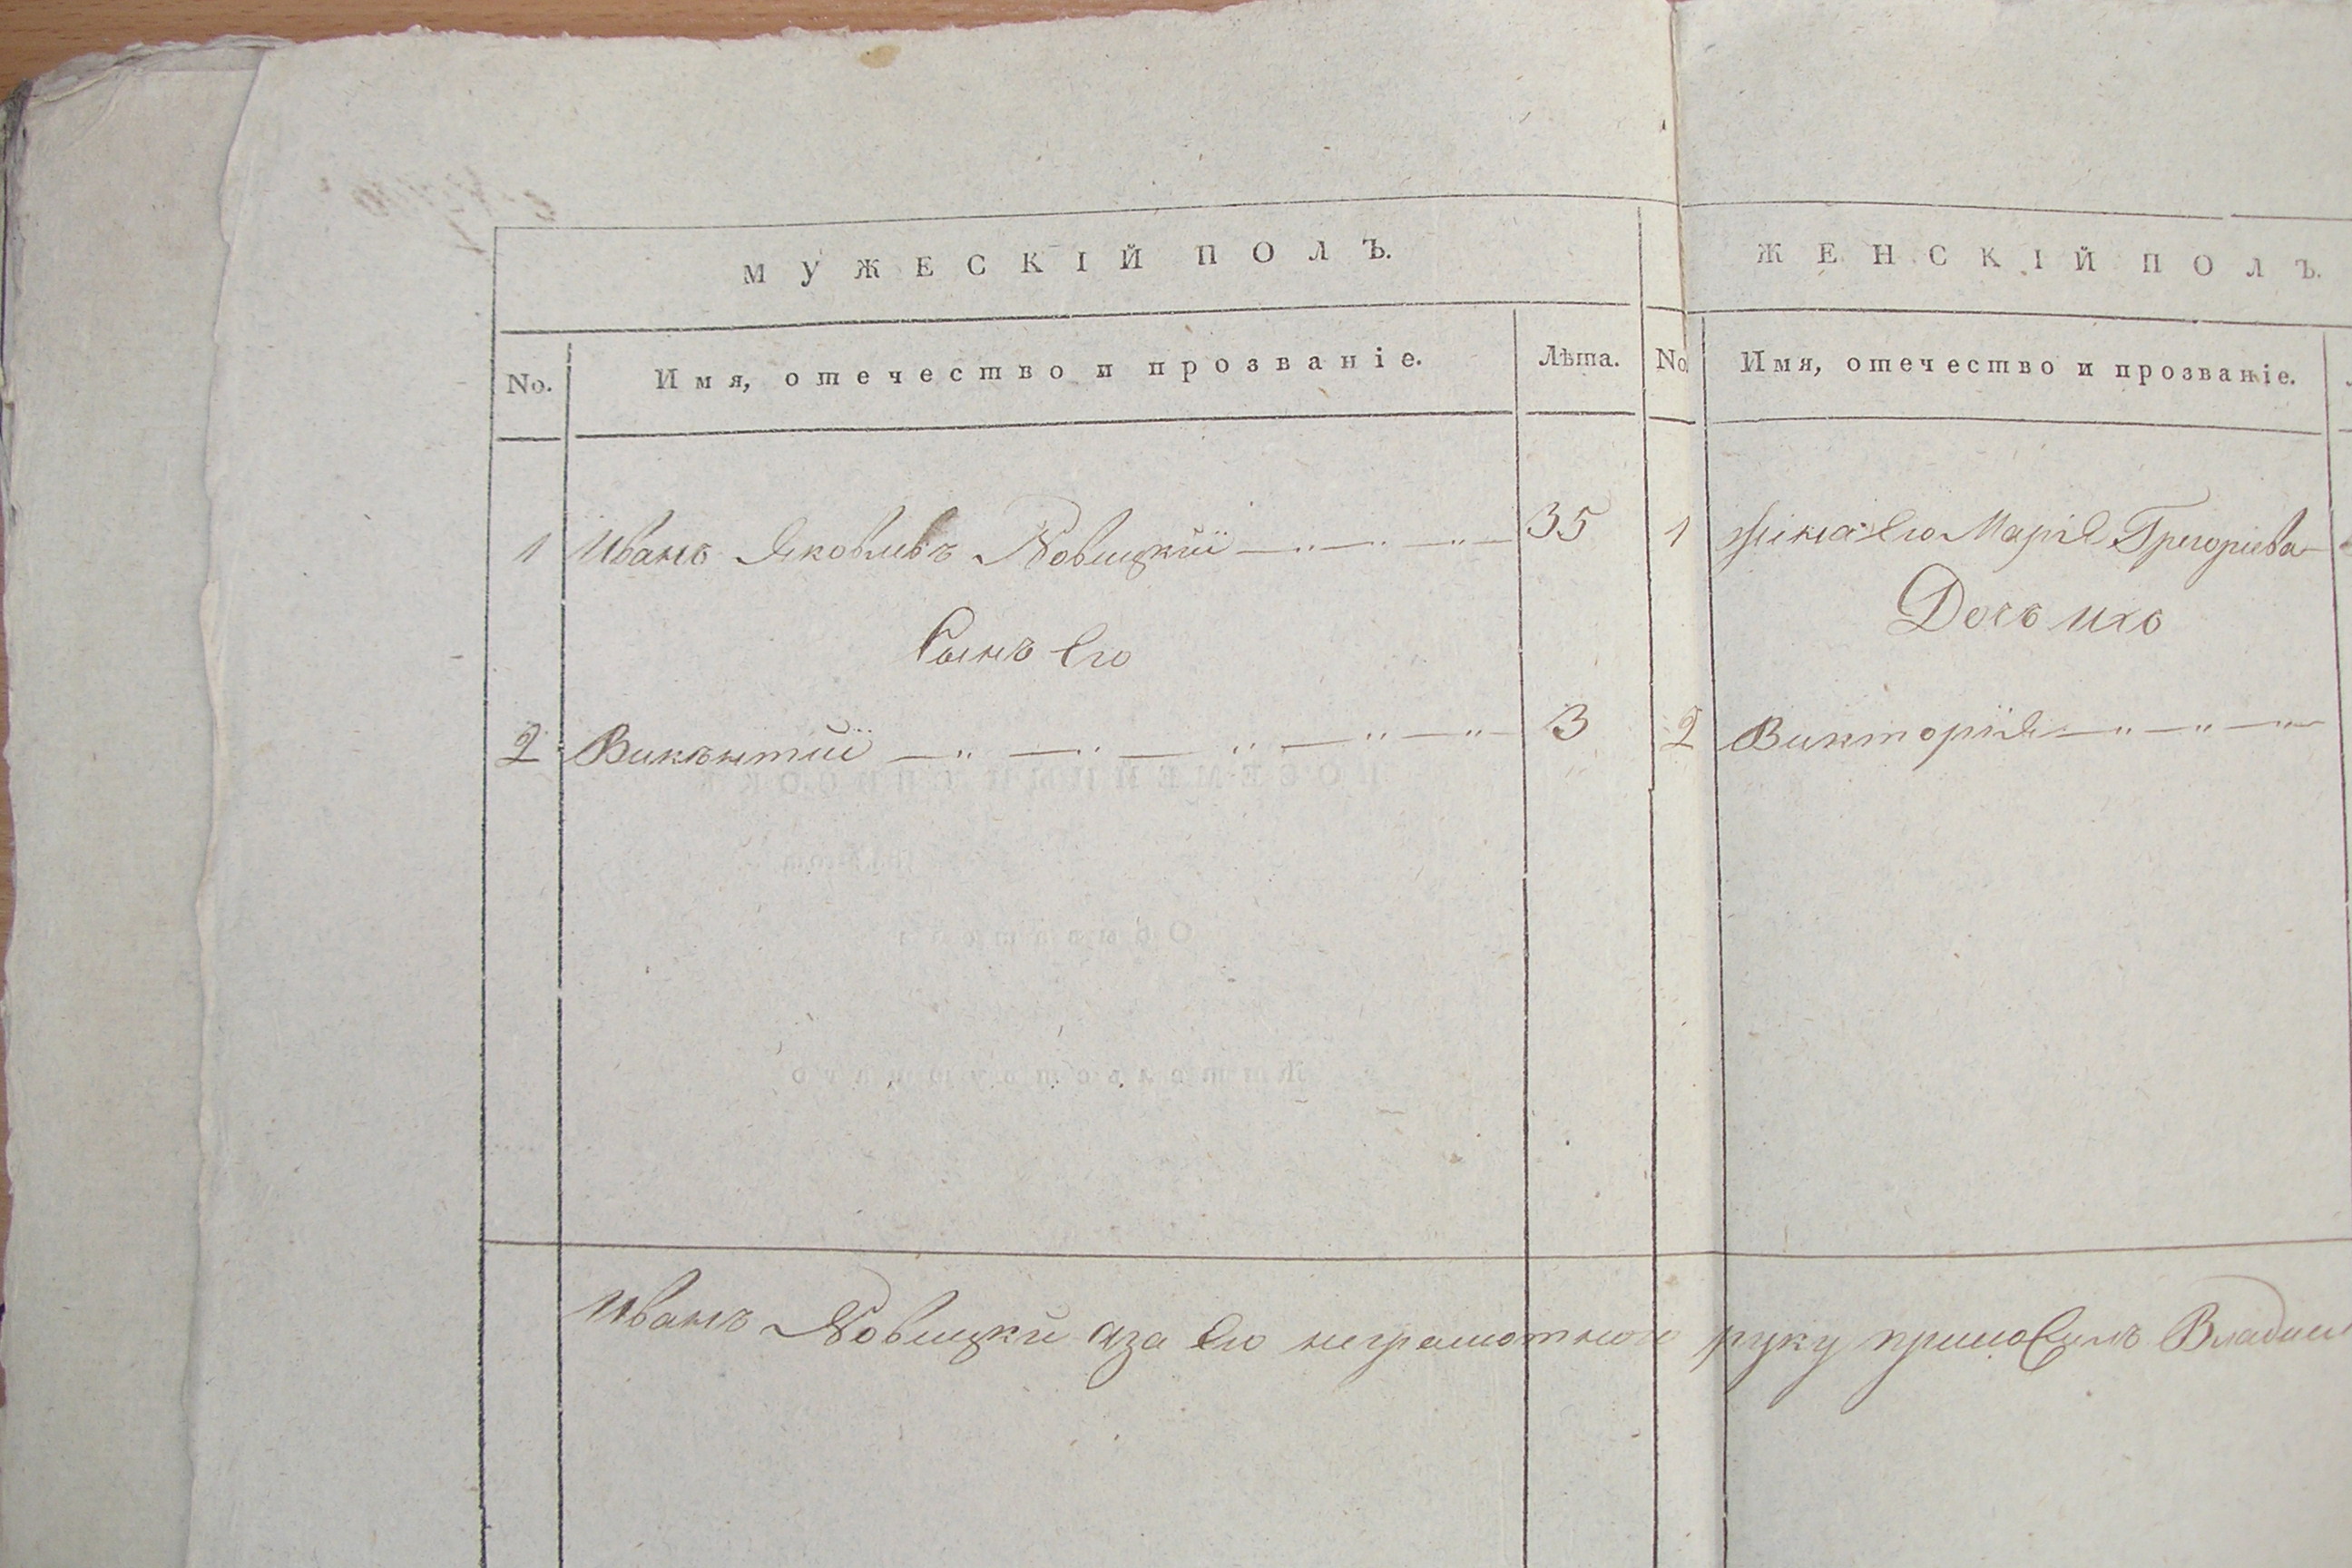 МУЖЕСКІЙ ПОЛЪ.
No. Имя, отечество и прозваніе. Лѣта.
1 Иванъ Яковливъ Новицкий 35
Сынъ Его
2 Викентий 3
ЖЕНСКІЙ ПОЛЪ.
No. Имя, отечество и прозваніе.
1 жена Его Марія Григориева
Дочь ихъ
2 Викторія
Иванъ Новицки аза Его неграмотного руку приложилъ Владим